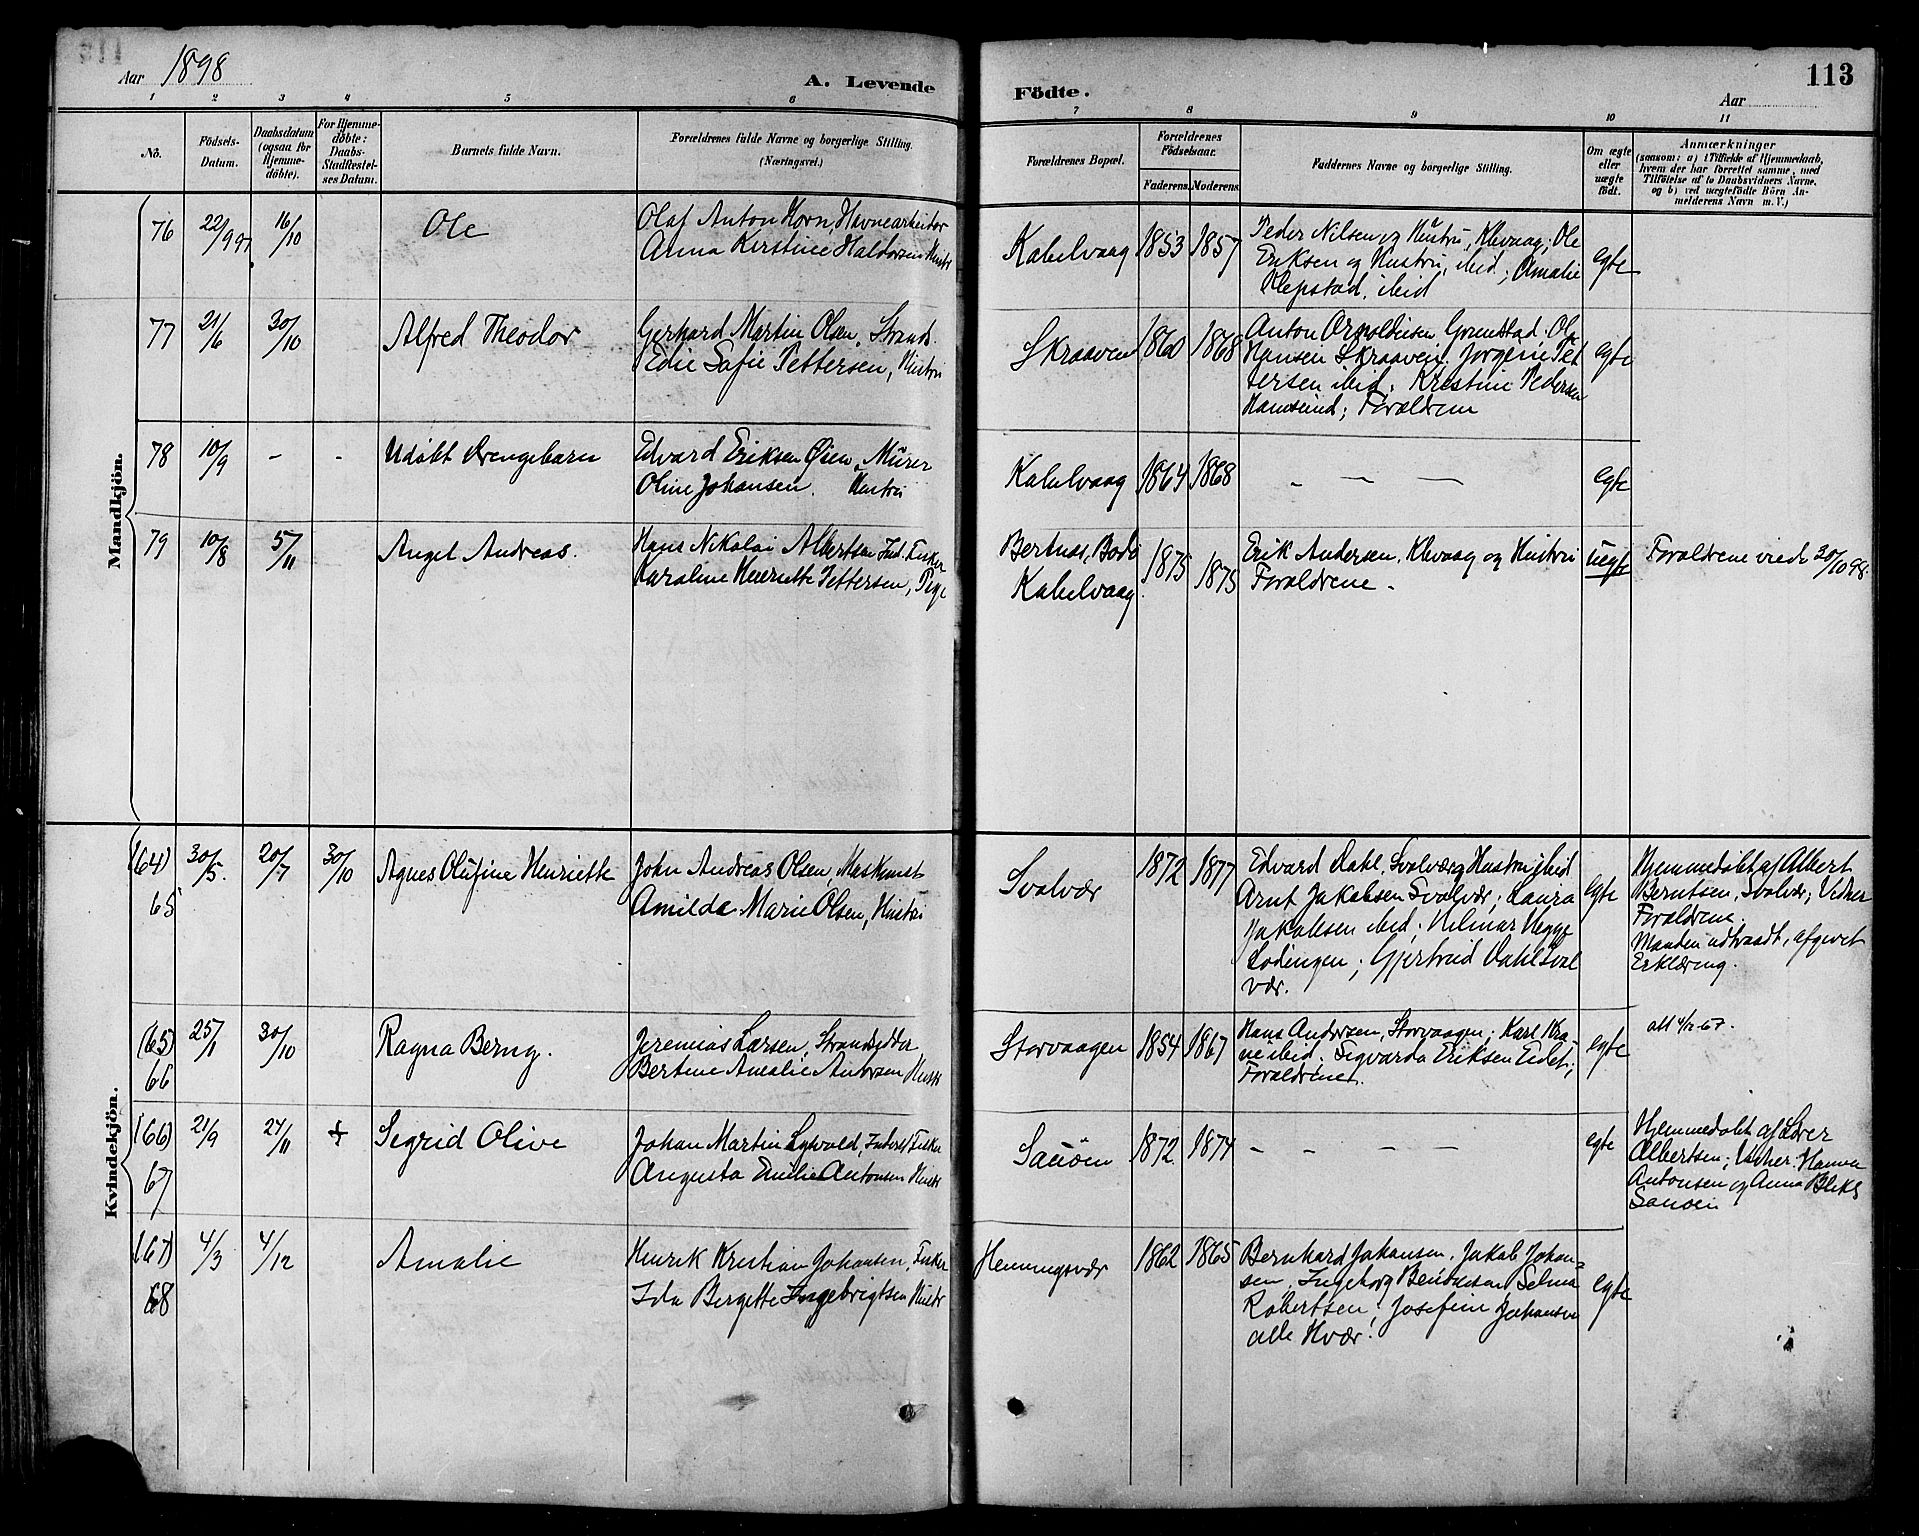 Aar 1898
A. Levende
Födte.
Aar
113
1 2 3 4 5 6 7 8 9 10 11
No.
Födsels-
Datum.
Daabsdatum
(ogsaa for
Hjemme-
döbte).
For Hjemme-
döbte:
Daabs-
Stadfæstel-
ses Datum.
Barnets fulde Navn.
Forældrenes fulde Navne og borgerlige Stilling.
(Næringsvei.)
Forældrenes Bopæl.
Forældrenes
Födselsaar.
Faderens. Moderens.
Faddernes Navne og borgerlige Stilling.
Om ægte
eller
uægte
födt.
Anmærkninger
(saasom: a) i Tilfælde af Hjemmedaab,
hvem der har forrettet samme, med
Tilföielse af to Daabsvidners Navne,
og b) ved uægtefödte Börn An-
melderens Navn m. V.)
Mandkjön.
76 22/9 97 16/10 Ole
Olaf Anton Horn, Havnearbeider
Anna Kirstine Haldorsen Hustr
Kabelvaag 1853 1857
Peder Nilsen og Hustru, Klevaag; Ole
Eriksen og Hustru, ibid; Amalie
Klepstad, ibid
egte
77 21/6 30/10 Alfred Theodor
Gerhard Martin Olsen, Strands.
Edie Sofie Pettersen, Hustru
Skraaven 1860 1868
Anton Arnoldusen, Grundstad, Ole
Hansen Skraaven. Jorgene Pet
tersen ibid. Kristine Pedersen
Hamsund; Forældrene
egte
78 10/9 - - Udöbt Drengebarn
Edvard Eriksen Öien, Murer
Oline Johansen. Hustru
Kabelvaag 1864 1868 - - -
egte
79 10/8 5/11 Anget Andreas.
Hans Nikolai Albertsen Ind. Fisker
Karoline Henriette Pettersen, Pige
Bertnes, Bodö 1875
Kabelvaag 1875
Erik Andersen, Klevaag og Hustru
Forældrene.
uegte
Forældrene viede 30/10 98.
Kvindekjön.
(64) 30/5 20/7 30/10 Agnes Olufine Henriette
65
John Andreas Olsen, Maskinist
Amilda Marie Olsen, Hustru
Svolvær 1872 1877
Edvard Dahl, Svolvær Hustru, ibid
Arnt Jakobsen Svolvær; Laura
Jakobsen ibid; Hilmar Hegge
Lödingen; Gjertrud Dahl Svol
vær.
egte
Hjemmedöbt af Albert
Berntsen, Svolvær; Vidner
Forældrene.
Manden udtraadt, afgivet
Erklæring.
(65) 25/1 30/10 Ragna Berng.
66
Jeremias Larsen, Strandsidder
Bertine Amalie Andersen Hustr
Storvaagen 1854 1867
Hans Andersen, Storvaagen; Karl Kra
ne ibid. Sigvarda Eriksen Eidet;
Forældrene.
egte
att 4/12-67.
(66) 21/9 24/11 + Sigrid Olive
67
Johan Martin Lyvold, Inderst Fisker
Augusta Emilie Antonsen Hustr
Sauöen 1872. 1874 - - - -
egte
Hjemmedöbt af Lærer
Albertsen; Vidner. Hanna
Antonsen og Anna Bleks
Sauöen
(67) 4/3 4/12 Amalie
68
Henrik Kristian Johansen, Fisker
Ida Bergette Ingebrigtsen Hustr
Henningsvær 1862 1865
Bernhard Johansen, Jakob Johan-
sen, Ingeborg Benoneson, Selma
Robertsen; Josefine Johansen
alle Hvær.
egte